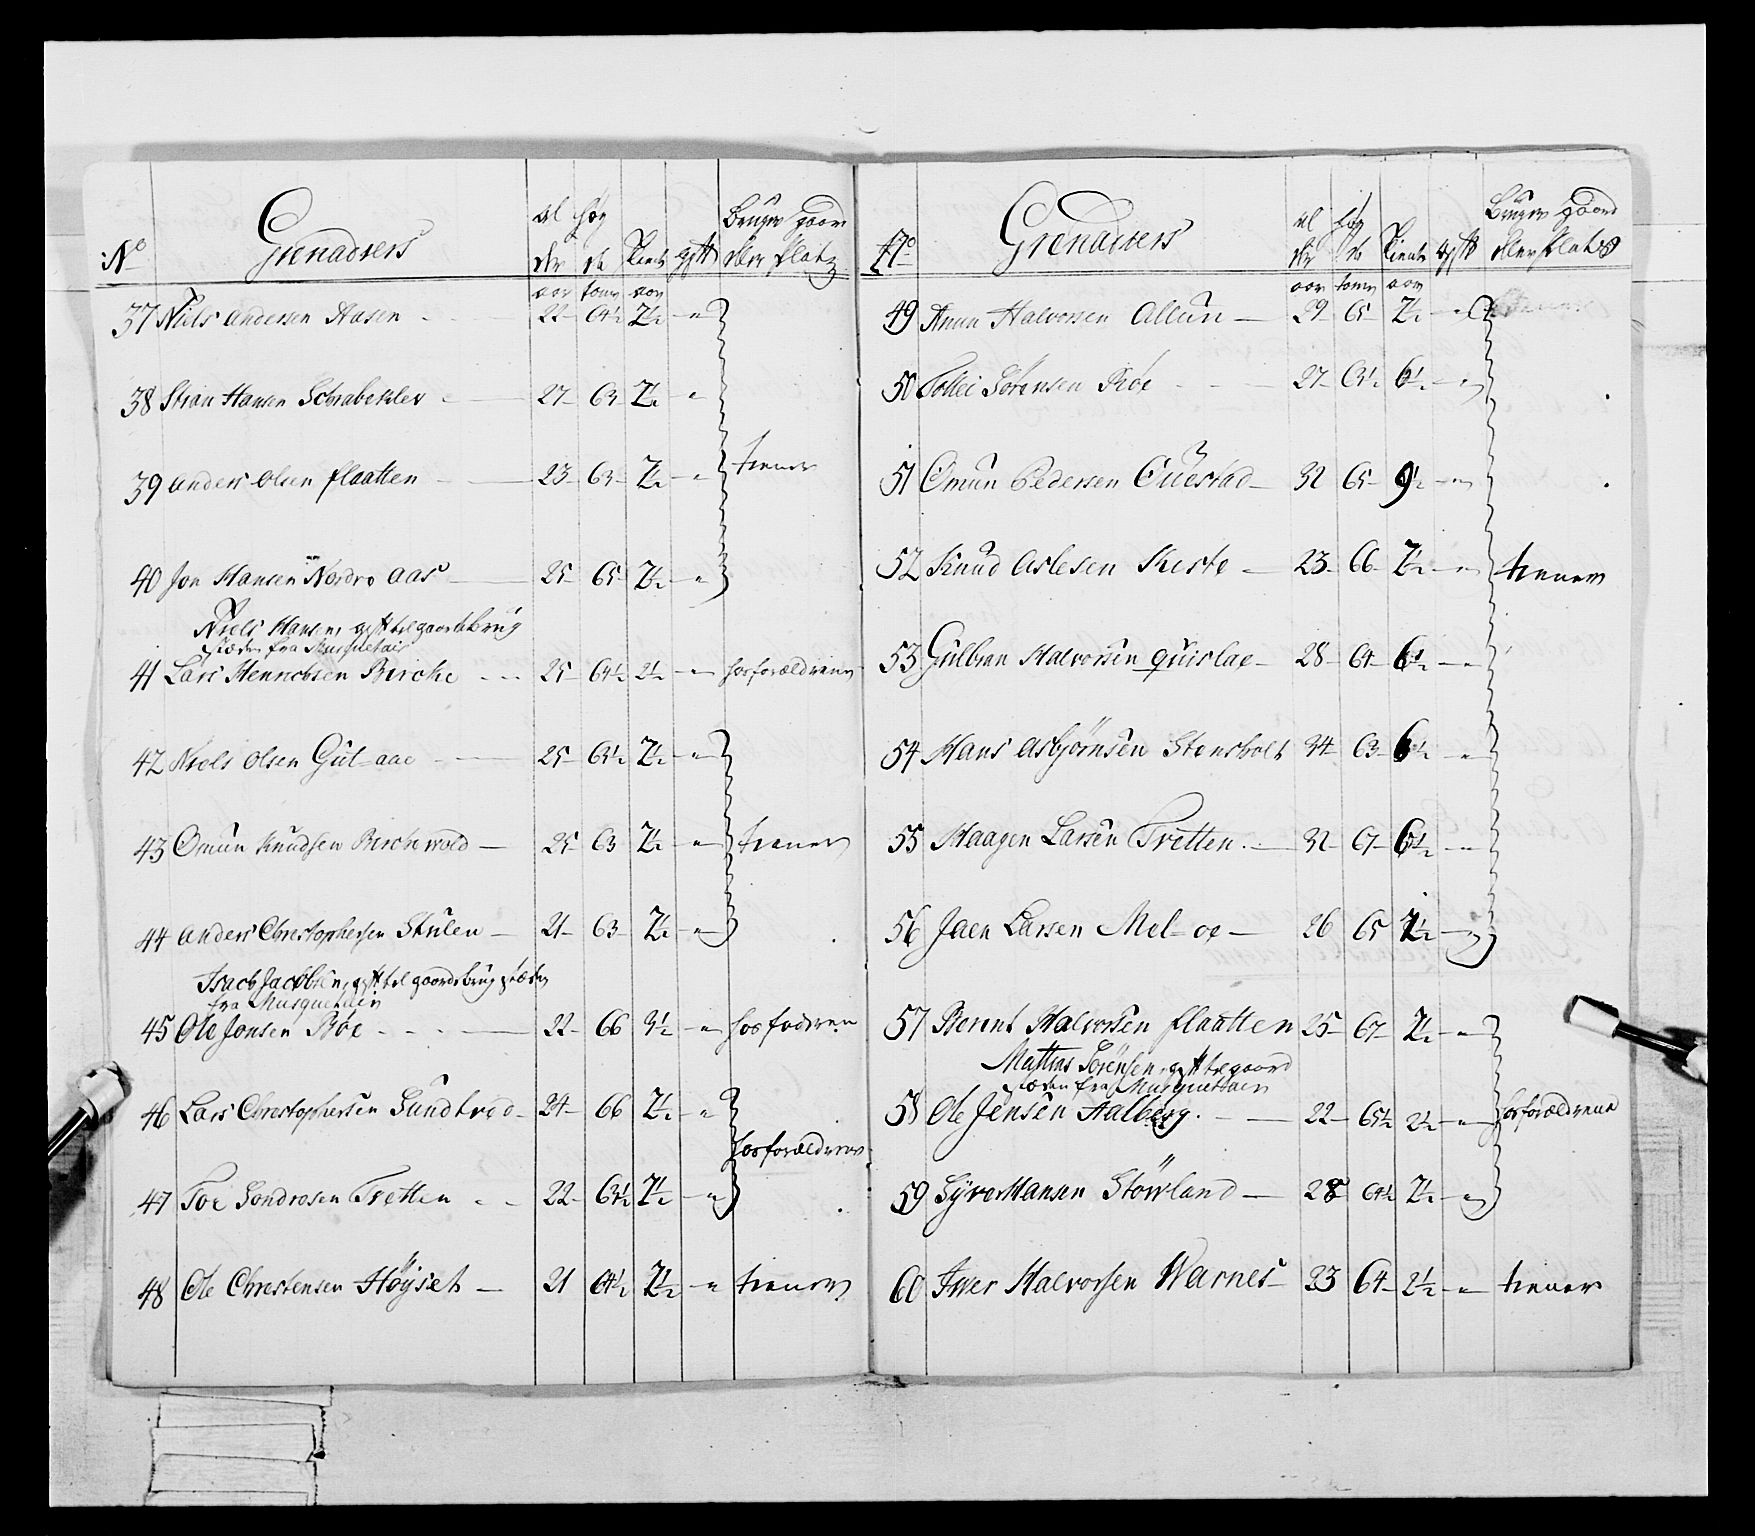 No Grenadeers al der høy de tient gift Bruger gaard eller platz
aar tomr aar
37 Niels andersen Aasen 22 64½ 2½ "
38 Stian Hansen 27 63 2½ "
39 anders olsen flaatten 23 63 2½ " tiener
40 Jon Hansen Nordre aas 25 65 2½ "
Niels Hansen, gift til gaardebrug
steden fra Musquetair
41 Lars Henrichsen Bircke 25 64½ 2½ " hos forældrene
42 Niels olsen Gul-aae 25 63½ 2½ "
43 Omun Knudsen Birchwold 25 63 2½ " tiener
44 anders Christophersen Stulen 21 63 2½ "
Isach Jacobsen, gift til gaardsbrug steden
fra Musquetair
45 Ole Jonsen Böe 22 66 3½ " hos
46 Lars Christophersen Sundbröe 24 66 2½ "
hos forældrene
47 Toe Tretten 22 63½ 2½ "
48 Ole Christensen Höyset 21 64½ 2½ " tiener
No Grenadeers al der høy de tient gift Bruger gaard eller platz
aar tomr aar
49 Halvorsen 29 65 2½ "
50 Tollei Sörensen Böe 27 63½ 6½ "
51 Omun Pedersen 32 65 9½ "
52 Knud Aslesen 23 66 2½ " tiener
53 Gulbran Halvorsen quislae 28 64 6½ "
54 Hans asbjörnsen Stensholt 34 63 6½ "
55 Haagen Larsen Tretten 32 67 6½ "
56 Jaen Larsen Mel-oe 26 65 2½ "
57 Berent Halvorsen flaatten 25 67 2½ "
Mattias Sörensen, gift til gaard
steden fra Musquetair
58 Ole Jensen Aalberg 22 65½ 2½ " hos forældrene
59 Syver Hansen Stöwland 28 64½ 2½ "
60 Iwer Halvorsen Warnes 23 64 2½ " tiener